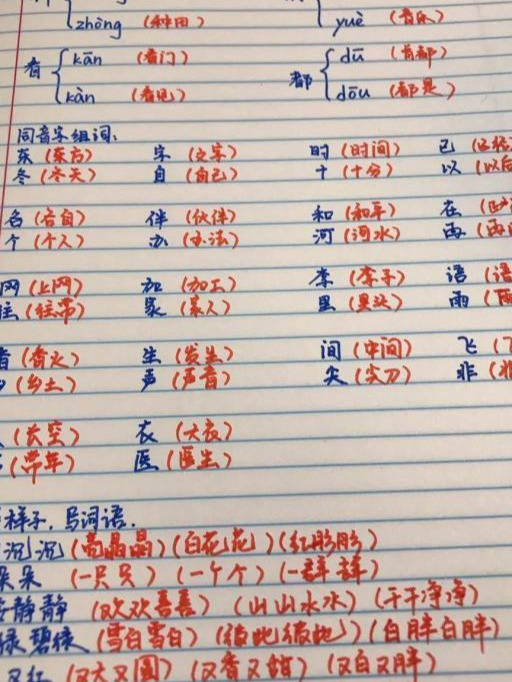 zhòng (种田) yuè (音乐)
看 kān (看门) 都 dū (首都)
kàn (看见) dōu (都是)
同音字组词:
东 (东方) 字 (文字) 时 (时间) 已
冬 (冬天) 自 (自己) 十 (十分) 以 (以后
各 (各自) 伴 (伙伴) 和 (和平) 在
个 (个人) 办 (办法) 河 (河水) 再
网 (上网) 加 (加工) 李 (李子) 语 (语
往 (往常) 家 (家人) 里 (里头) 雨 (雨
香 (香火) 生 (发生) 间 (中间) 飞
(乡土) 声 (声音) 尖 (尖刀) 非 (非
(长空) 衣 (大衣)
(常年) 医 (医生)
样子,写词语.
沉沉 (亮晶晶) (白花花) (红彤彤)
朵朵 (一只只) (一个个) (一群群)
静静 (欢欢喜喜) (山山水水) (干干净净)
绿碧绿 (雪白雪白) (彼此彼此) (白胖白胖)
又红 (又大又圆) (又香又甜) (又白又胖)